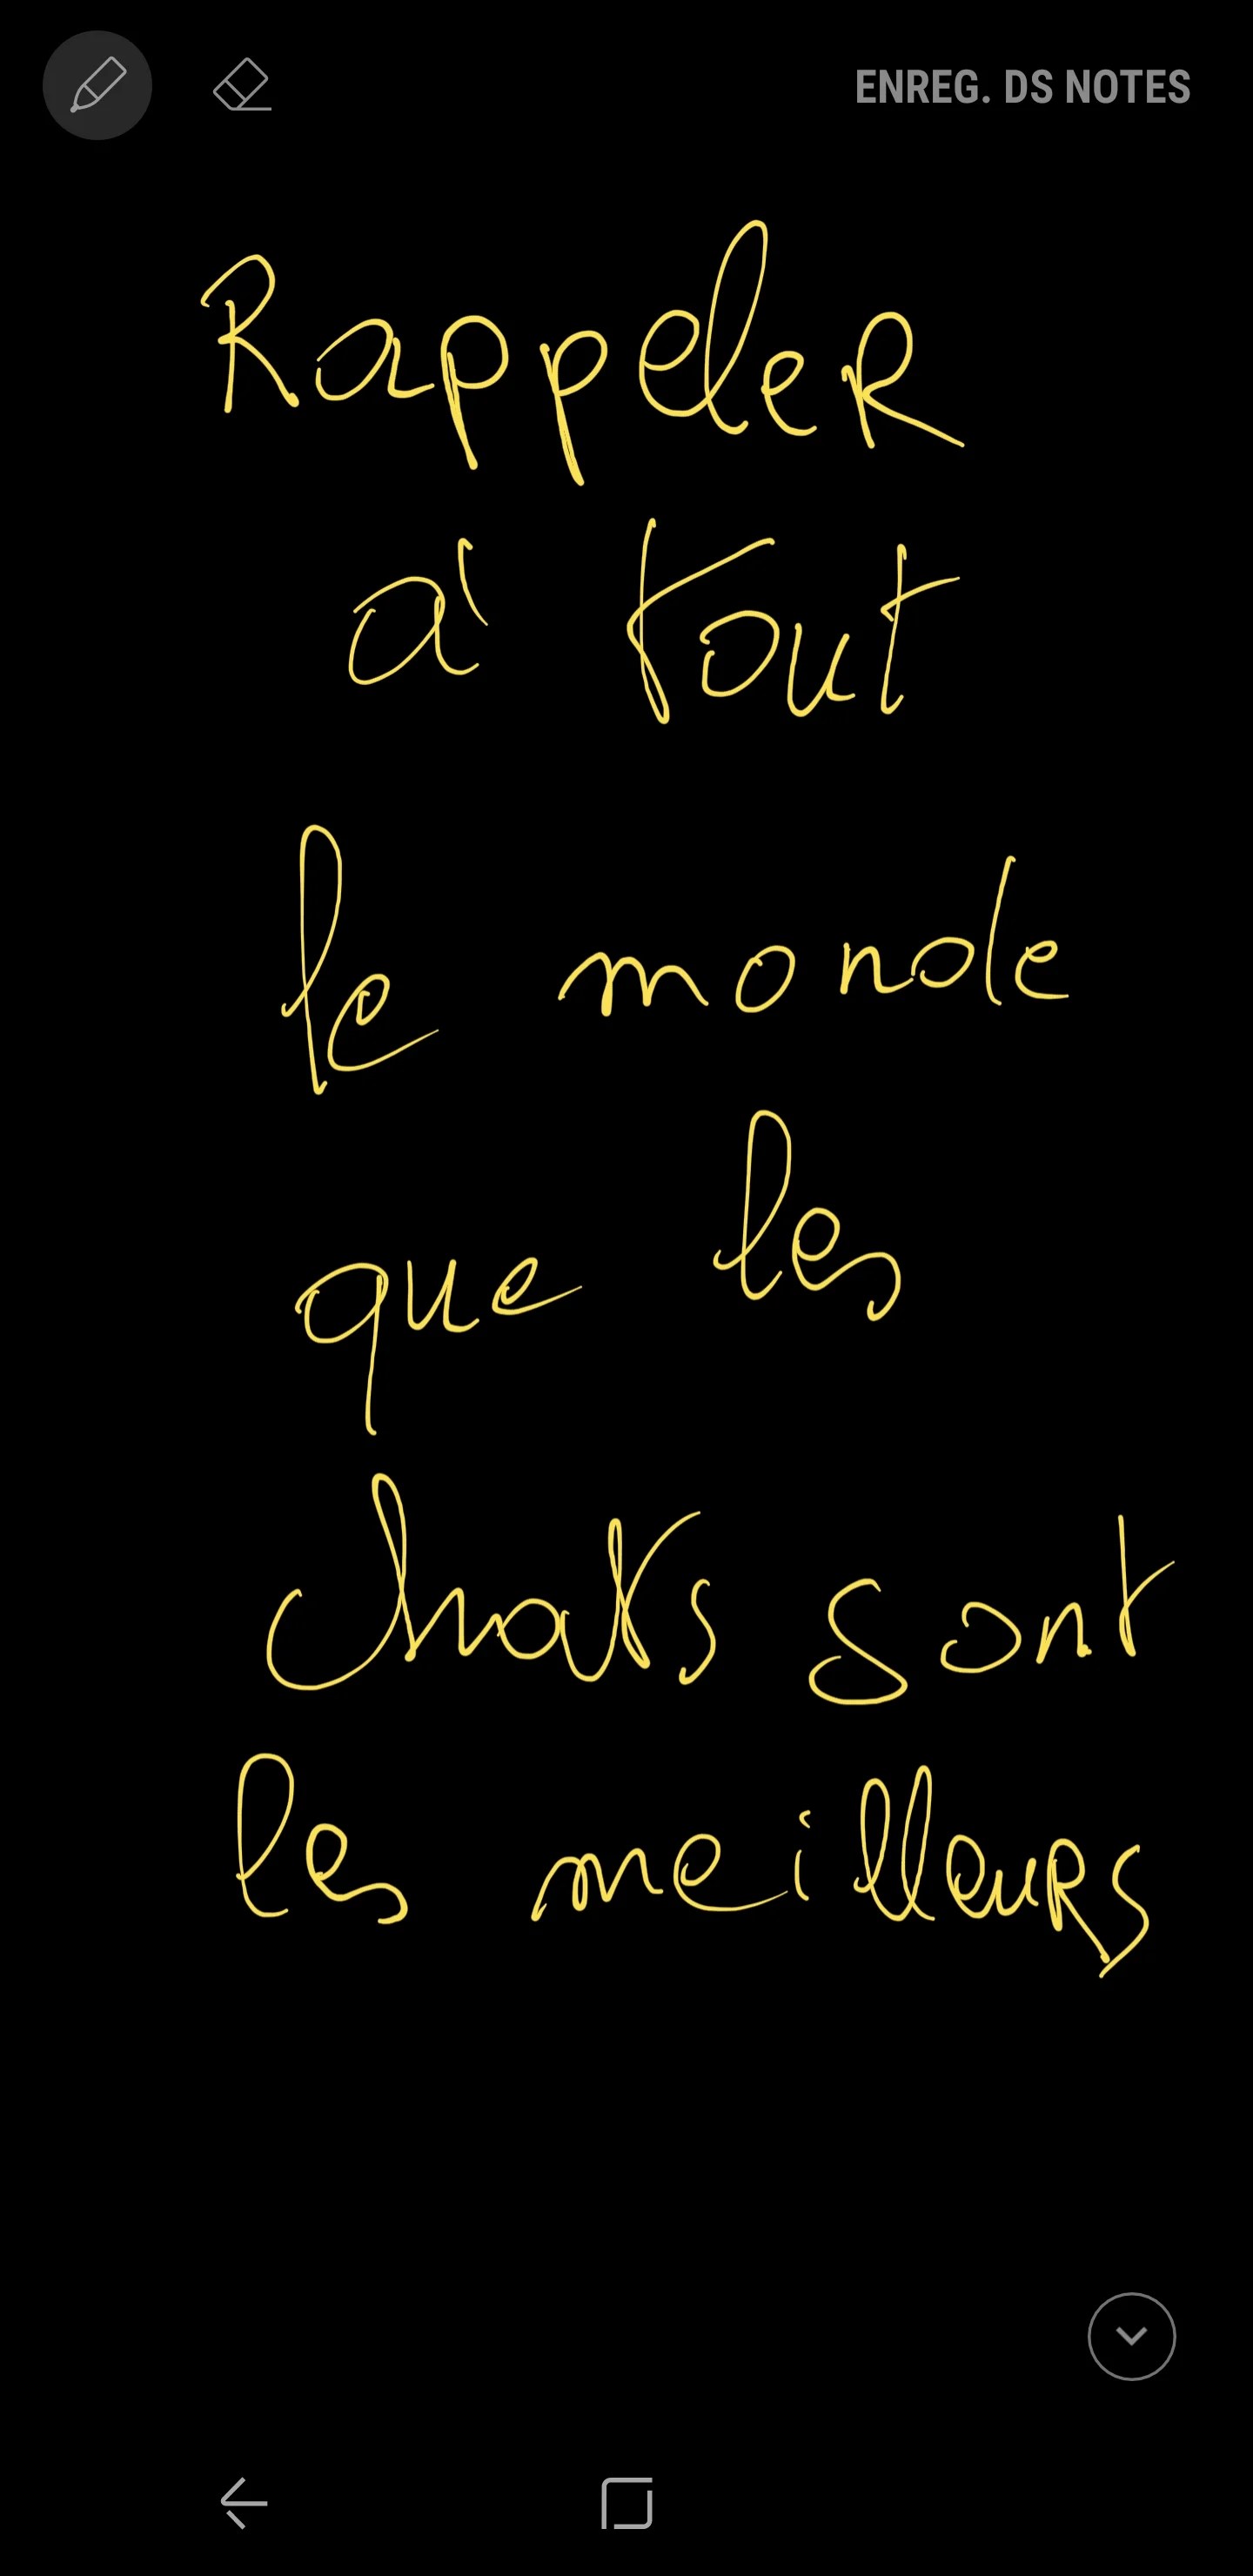 ENREG. DS NOTES
Rappeler
à tout
le monde
que les
chats sont
les meilleurs